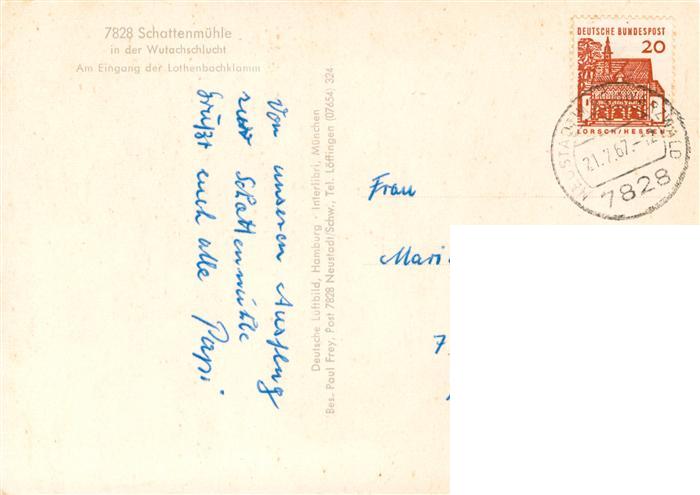 7828 Schattenmühle
in der Wutachschlucht
Am Eingang der Lothenbachklamm
Von unserem Ausflug
zur Schattenmühle
grüßt euch alle Papi
Deutsche Luftbild, Hamburg · Interlibri, München
Bes. Paul Frey, Post 7828 Neustadt/Schw., Tel. Löffingen (07654) 324
DEUTSCHE BUNDESPOST
20
LORSCH/HESSEN
21.7.67.-12
7828
Frau
Mari
7